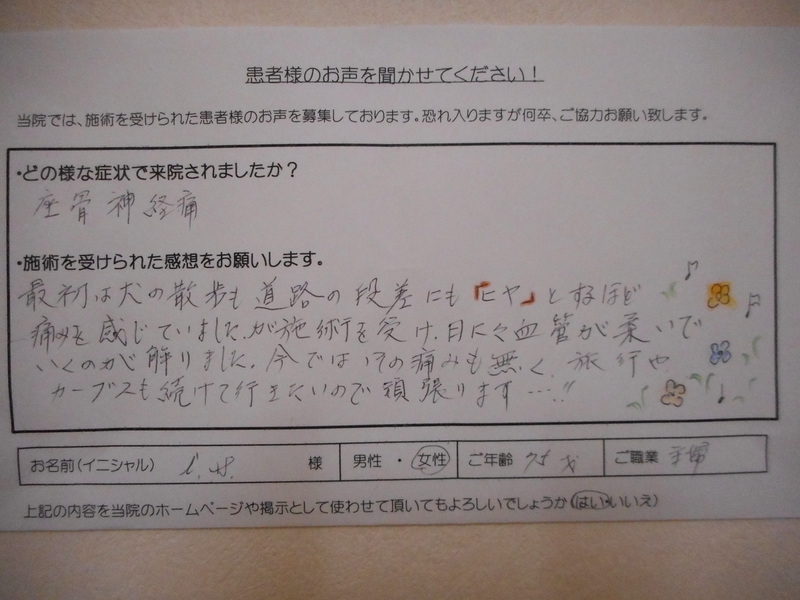 患者様のお声を聞かせてください！
当院では、施術を受けられた患者様のお声を募集しております。恐れ入りますが何卒、ご協力お願い致します。
・どの様な症状で来院されましたか？
座骨神経痛
・施術を受けられた感想をお願いします。
最初は犬の散歩も道路の段差にも「ヒヤ」とするほど
痛みを感じていました、が施術を受け、日に々血管が柔いで
いくのが解りました。今ではその痛みも無く、旅行や
カーブスも続けて行きたいので頑張ります…!!
お名前（イニシャル） 様 男性 ・ 女性 ご年齢 才 ご職業 主婦
上記の内容を当院のホームページや掲示として使わせて頂いてもよろしいでしょうか（はい・いいえ）